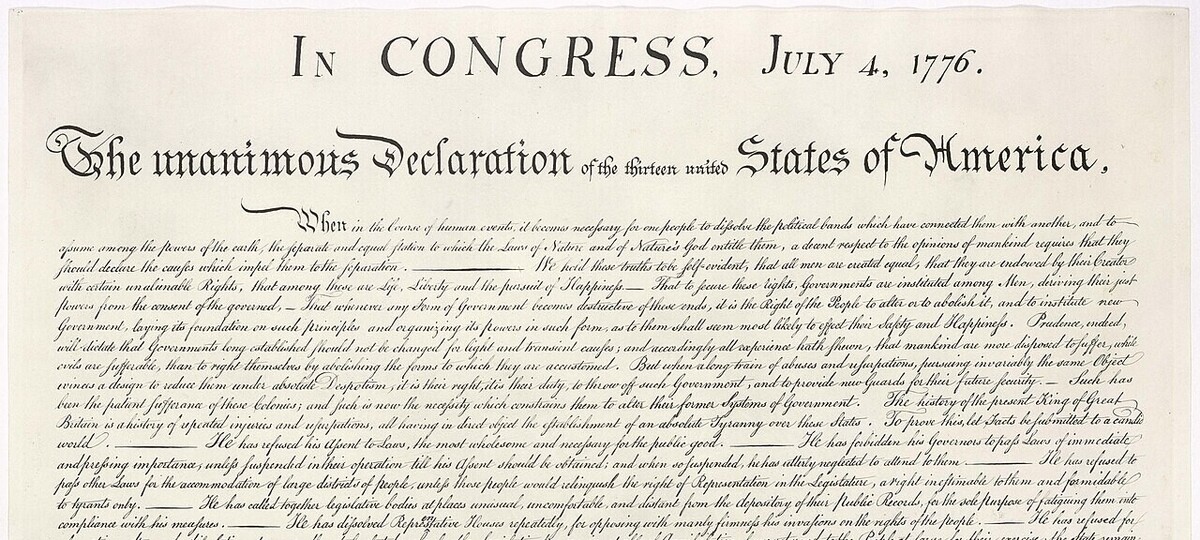 IN CONGRESS, JULY 4, 1776.
The unanimous Declaration of the thirteen united States of America,
When in the Course of human events, it becomes necessary for one people to dissolve the political bands which have connected them with another, and to
assume among the powers of the earth, the separate and equal station to which the Laws of Nature and of Nature's God entitle them, a decent respect to the opinions of mankind requires that they
should declare the causes which impel them to the separation. ——— We hold these truths to be self-evident, that all men are created equal, that they are endowed by their Creator
with certain unalienable Rights, that among these are Life, Liberty and the pursuit of Happiness. — That to secure these rights, Governments are instituted among Men, deriving their just
powers from the consent of the governed, — That whenever any Form of Government becomes destructive of these ends, it is the Right of the People to alter or to abolish it, and to institute new
Government, laying its foundation on such principles and organizing its powers in such form, as to them shall seem most likely to effect their Safety and Happiness. Prudence, indeed,
will dictate that Governments long established should not be changed for light and transient causes; and accordingly all experience hath shewn, that mankind are more disposed to suffer, while
evils are sufferable, than to right themselves by abolishing the forms to which they are accustomed. But when a long train of abuses and usurpations, pursuing invariably the same Object
evinces a design to reduce them under absolute Despotism, it is their right, it is their duty, to throw off such Government, and to provide new Guards for their future security. — Such has
been the patient sufferance of these Colonies; and such is now the necessity which constrains them to alter their former Systems of Government. The history of the present King of Great
Britain is a history of repeated injuries and usurpations, all having in direct object the establishment of an absolute Tyranny over these States. To prove this, let Facts be submitted to a candid
world. ——— He has refused his Assent to Laws, the most wholesome and necessary for the public good. ——— He has forbidden his Governors to pass Laws of immediate
and pressing importance, unless suspended in their operation till his Assent should be obtained; and when so suspended, he has utterly neglected to attend to them. ——— He has refused to
pass other Laws for the accommodation of large districts of people, unless those people would relinquish the right of Representation in the Legislature, a right inestimable to them and formidable
to tyrants only. ——— He has called together legislative bodies at places unusual, uncomfortable, and distant from the depository of their Public Records, for the sole purpose of fatiguing them into
compliance with his measures. ——— He has dissolved Representative Houses repeatedly, for opposing with manly firmness his invasions on the rights of the people. ——— He has refused for